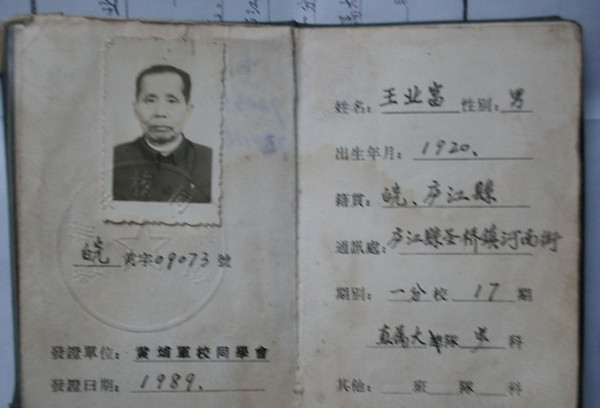 皖黄字09073號
發證單位：黄埔軍校同學會
發證日期：1989.
姓名：王业富 性别：男
出生年月：1920.
籍貫：皖、庐江縣
通訊處：庐江縣圣桥鎮河南街
期别：一分校 17 期
直属大隊 步 科
其他： 班 隊 科